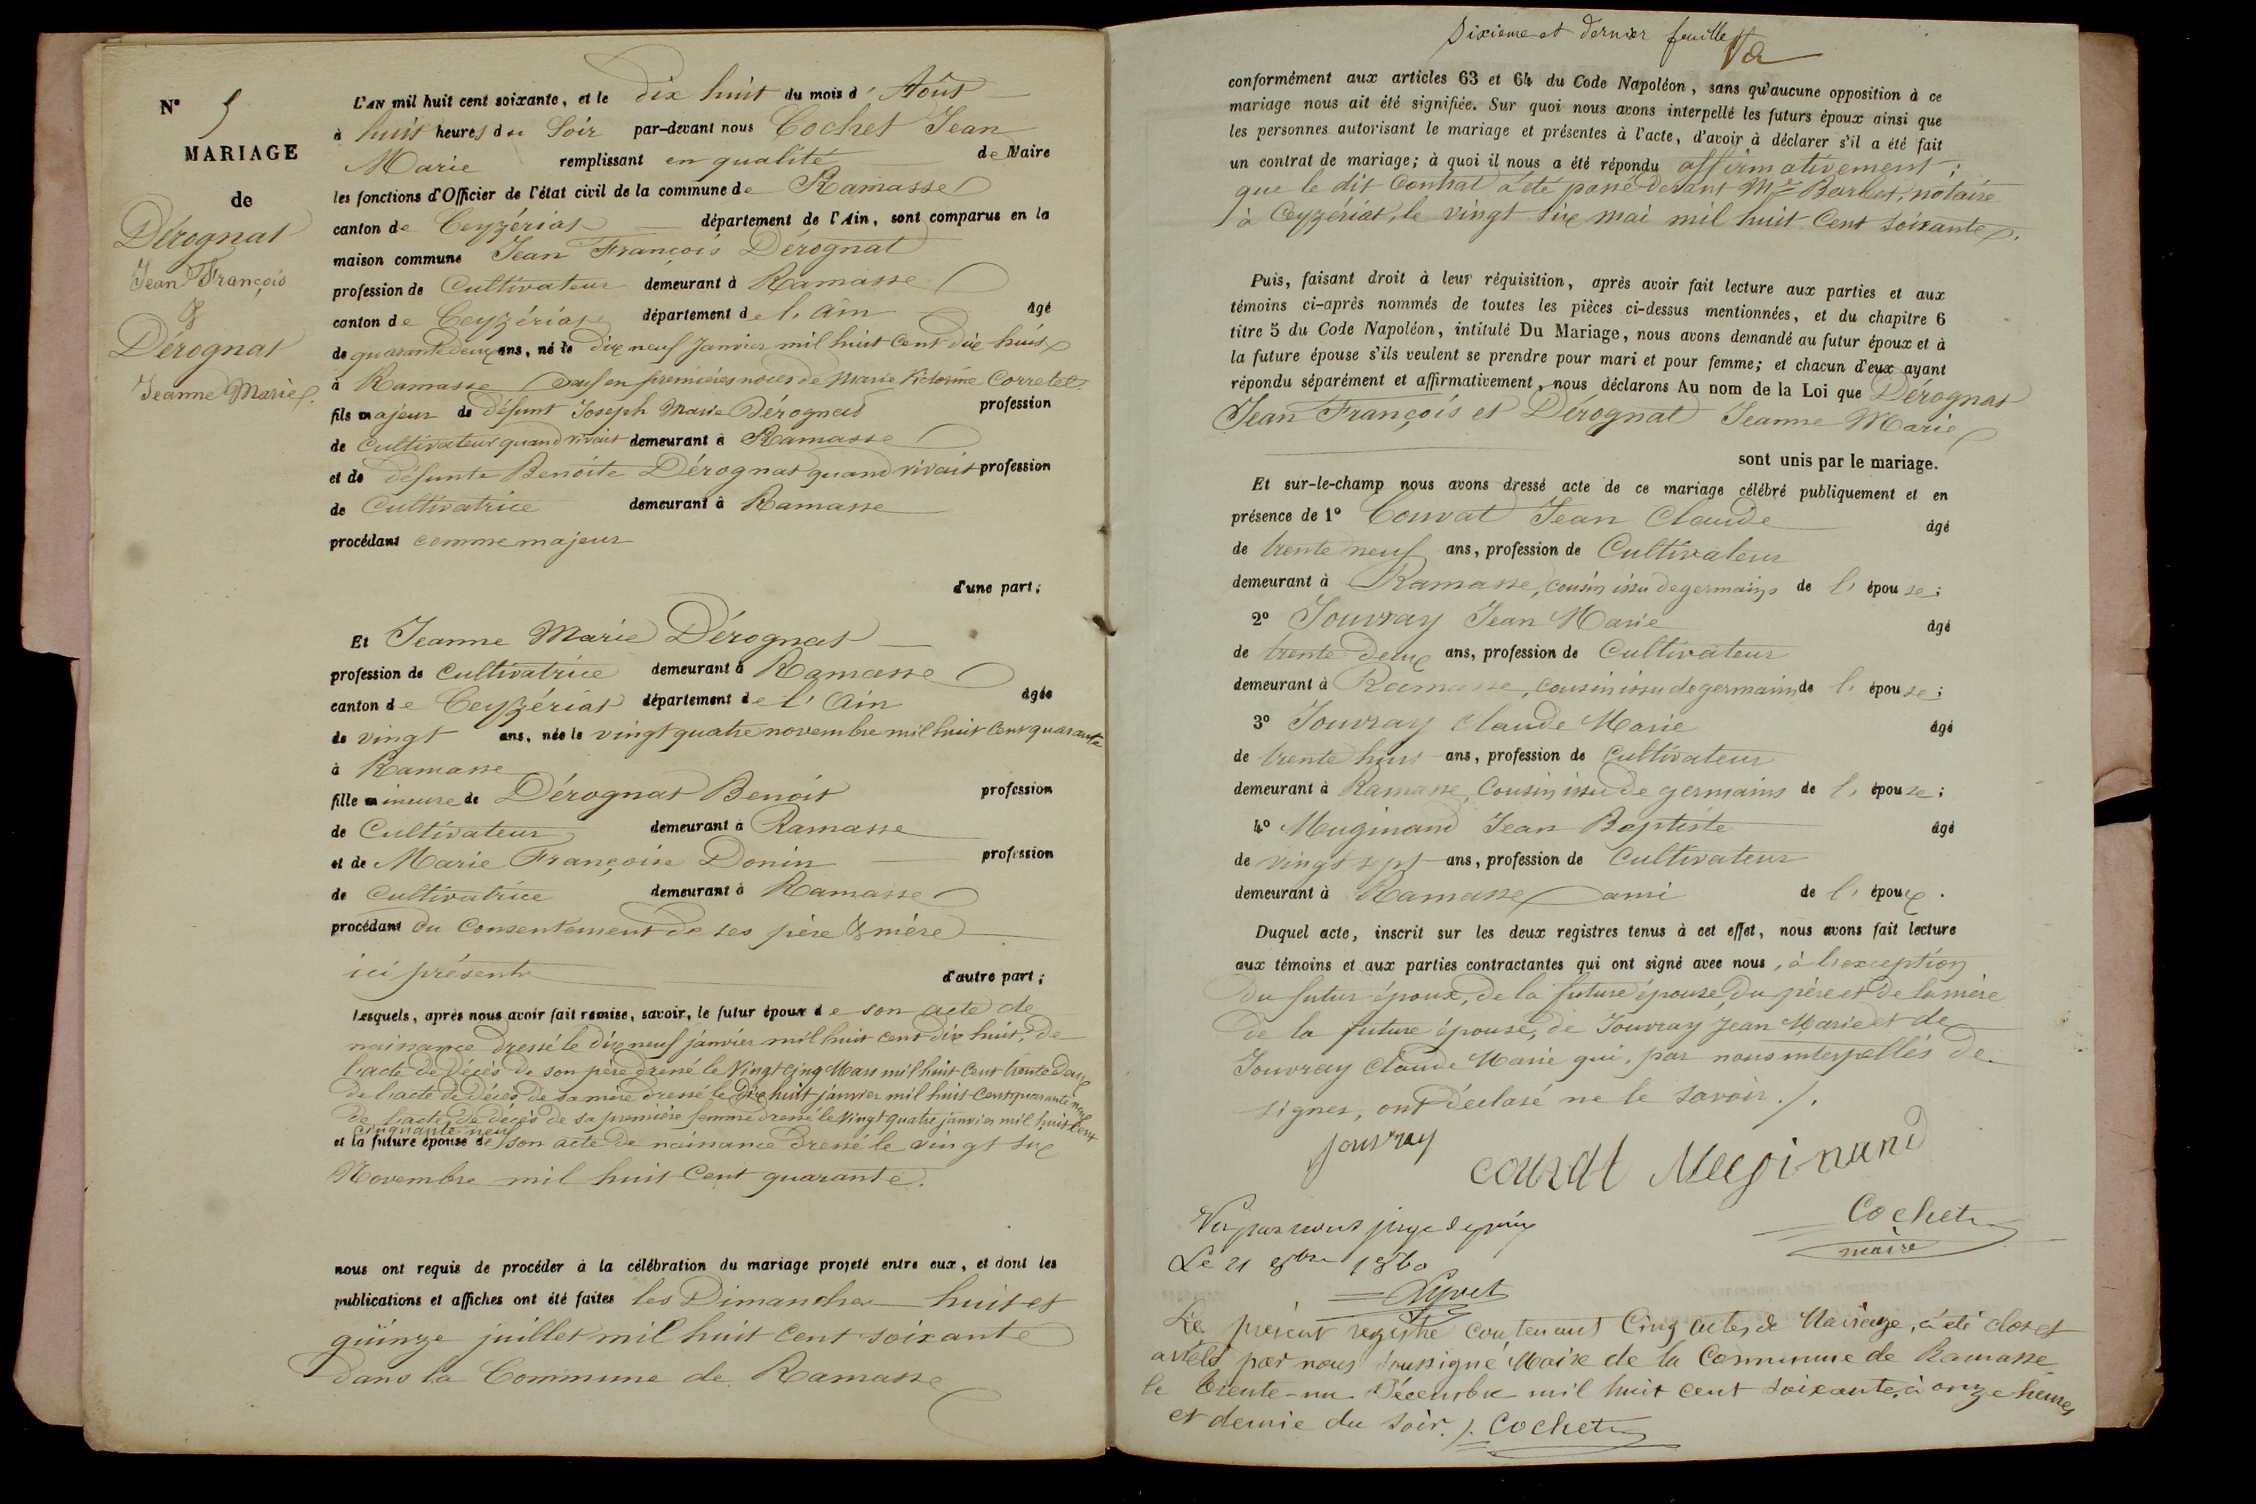 N° 5
MARIAGE
de
Dérognat
Jean François
&
Dérognat
Jeanne Marie.
L'AN mil huit cent soixante, et le dix huit du mois d'Août
à huit heures du Soir par-devant nous Cochet Jean
Marie remplissant en qualité de Maire
les fonctions d'Officier de l'état civil de la commune de Ramasse
canton de Ceyzériat département de l'Ain, sont comparus en la
maison commune Jean François Dérognat
profession de Cultivateur demeurant à Ramasse
canton de Ceyzériat département de l'Ain âgé
de quarante deux ans, né le dix neuf Janvier mil huit Cent dix huit
à Ramasse veuf en premières noces de Marie Victorine Corretel
fils majeur de défunt Joseph Marie Dérognat profession
de Cultivateur quand vivait demeurant à Ramasse
et de défunte Benoite Dérognat quand vivait profession
de Cultivatrice demeurant à Ramasse
procédant comme majeur
d'une part;
Et Jeanne Marie Dérognat
profession de cultivatrice demeurant à Ramasse
canton de Ceyzériat département de l'Ain âgée
de vingt ans, née le vingt quatre novembre mil huit Cent quarante
à Ramasse
fille mineure de Dérognat Benoit profession
de Cultivateur demeurant à Ramasse
et de Marie Françoise Donin profession
de Cultivatrice demeurant à Ramasse
procédant du Consentement de ses père & mère
ici présents d'autre part;
Lesquels, après nous avoir fait remise, savoir, le futur époux de son acte de
naissance dressé le dix neuf janvier mil huit cent dix huit, de
l'acte de décès de son père dressé le Vingt cinq Mars mil huit Cent trente deux
de l'acte de décès de sa mère dressé le dix huit janvier mil huit Cent quarante neuf
de l'acte de décès de sa première femme dressé le Vingt quatre janvier mil huit Cent
cinquante neuf
et la future épouse de son acte de naissance dressé le vingt six
Novembre mil huit Cent quarante.
nous ont requis de procéder à la célébration du mariage projeté entre eux, et dont les
publications et affiches ont été faites les Dimanches huit et
quinze juillet mil huit cent soixante
dans la Commune de Ramasse
Sixième et dernier feuillet
conformément aux articles 63 et 64 du Code Napoléon, sans qu'aucune opposition à ce
mariage nous ait été signifiée. Sur quoi nous avons interpellé les futurs époux ainsi que
les personnes autorisant le mariage et présentes à l'acte, d'avoir à déclarer s'il a été fait
un contrat de mariage; à quoi il nous a été répondu affirmativement;
que le dit Contrat a été passé devant Me notaire
à Ceyzériat, le vingt six mai mil huit Cent soixante.
Puis, faisant droit à leur réquisition, après avoir fait lecture aux parties et aux
témoins ci-après nommés de toutes les pièces ci-dessus mentionnées, et du chapitre 6
titre 5 du Code Napoléon, intitulé Du Mariage, nous avons demandé au futur époux et à
la future épouse s'ils veulent se prendre pour mari et pour femme; et chacun d'eux ayant
répondu séparément et affirmativement, nous déclarons Au nom de la Loi que Dérognat
Jean François et Dérognat Jeanne Marie
sont unis par le mariage.
Et sur-le-champ nous avons dressé acte de ce mariage célébré publiquement et en
présence de 1° Convat Jean Claude âgé
de trente neuf ans, profession de Cultivateur
demeurant à Ramasse, cousin issu de germains de l'épouse;
2° Jouvray Jean Marie âgé
de trente deux ans, profession de Cultivateur
demeurant à Ramasse, cousin issu de germains de l'épouse;
3° Jouvray Claude Marie âgé
de trente huit ans, profession de Cultivateur
demeurant à Ramasse, Cousin issu de germains de l'épouse;
4° Muginand Jean Baptiste âgé
de vingt sept ans, profession de Cultivateur
demeurant à Ramasse ami de l'époux.
Duquel acte, inscrit sur les deux registres tenus à cet effet, nous avons fait lecture
aux témoins et aux parties contractantes qui ont signé avec nous, à l'exception
du futur époux, de la future épouse, du père et de la mère
de la future épouse, de Jouvray Jean Marie et de
Jouvray Claude Marie qui, par nous interpellés de
signer, ont déclaré ne le savoir./.
Jouvray
couvat Muginand
Cochet
maire
Vu par nous juge de paix
Le 21 1860
Le présent registre contenant Cinq actes de Mariage, a été clos et
arrêté par nous soussigné Maire de la Commune de Ramasse
le trente-un Décembre mil huit cent soixante, à onze heures
et demie du soir./. Cochet